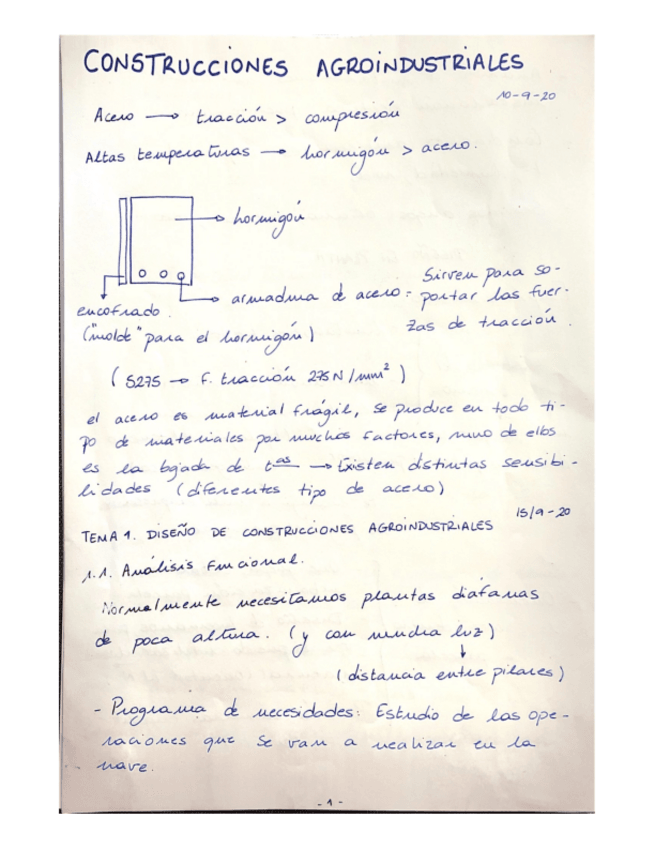 CONSTRUCCIONES AGROINDUSTRIALES
10-9-20
Acero → tracción > compresión
Altas temperaturas → hormigón > acero.
→ hormigón
encofrado.
("molde" para el hormigón)
→ armadura de acero: Sirven para so-
portar las fuer-
zas de tracción.
(S275 → F. tracción 275N/mm²)
el acero es material frágil, se produce en todo ti-
po de materiales por muchos factores, uno de ellos
es la bajada de tas → Existen distintas sensibi-
lidades (diferentes tipo de acero)
15/9-20
TEMA 1. DISEÑO DE CONSTRUCCIONES AGROINDUSTRIALES
1.1. Análisis Funcional.
Normalmente necesitamos plantas diáfanas
de poca altura. (y con mucha luz)
↓
(distancia entre pilares)
- Programa de necesidades: Estudio de las ope-
raciones que se van a realizar en la
nave.
- 1 -